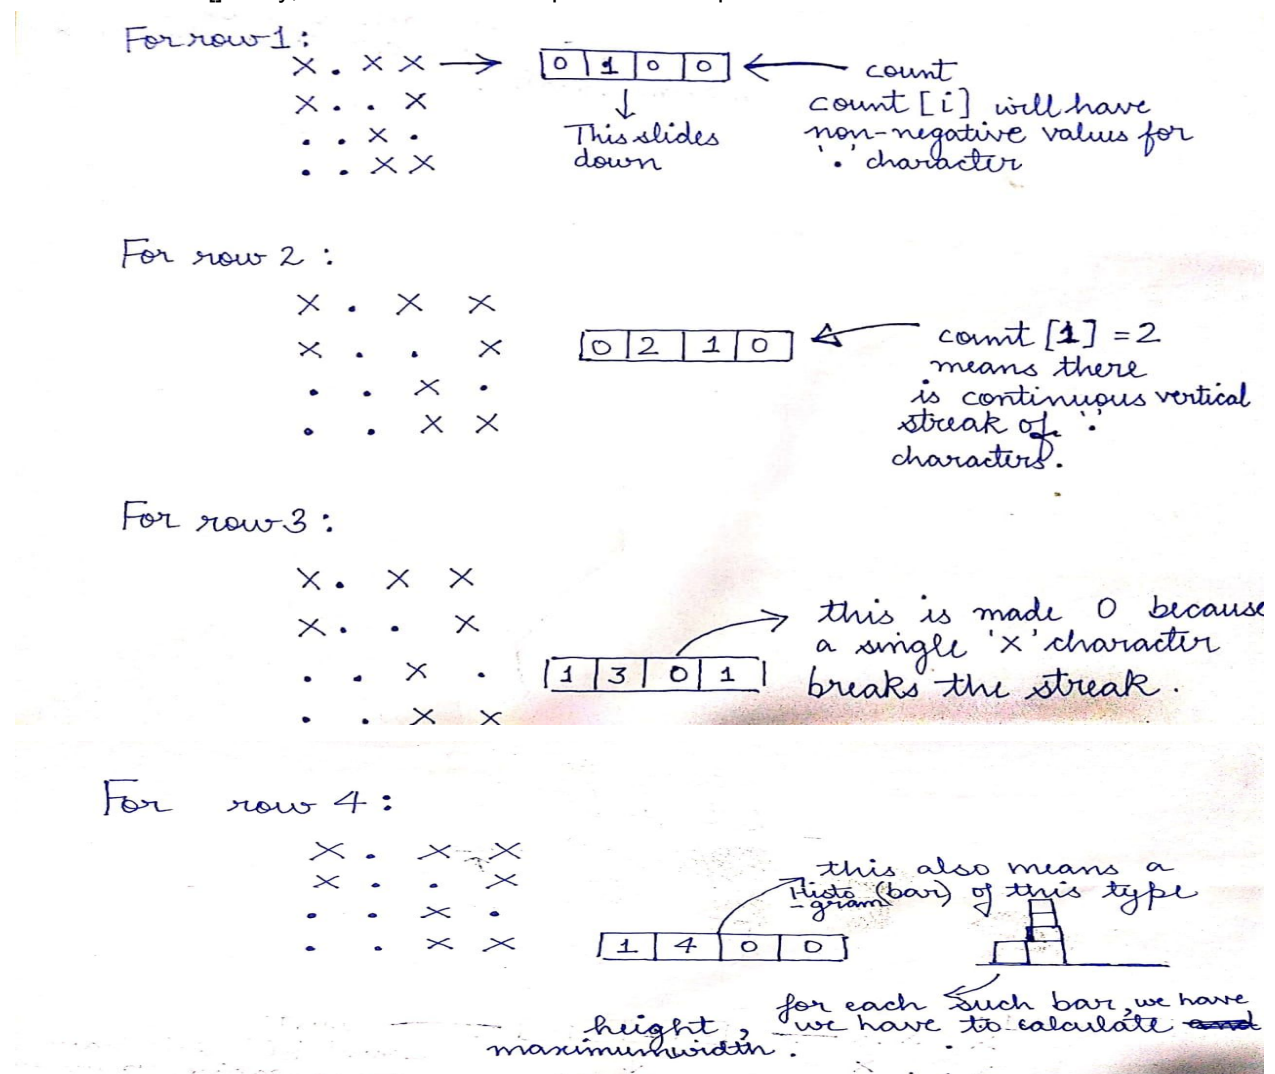 For row 1:
X . X X → 0 1 0 0 ← count
X . . X
. . X .
. . X X
This slides
down
count [i] will have
non-negative values for
'.' character
For row 2 :
X . X X
X . . X
. . X .
. . X X
0 2 1 0
count [1] = 2
means there
is continuous vertical
streak of '.'
characters.
For row 3 :
X . X X
X . . X
. . X .
. . X X
1 3 0 1
this is made 0 because
a single 'X' character
breaks the streak.
For row 4 :
X . X X
X . . X
. . X .
. . X X
1 4 0 0
this also means a
Histo (bar) of this type
-gram
for each such bar, we have
height, we have to calculate and
maximum width.